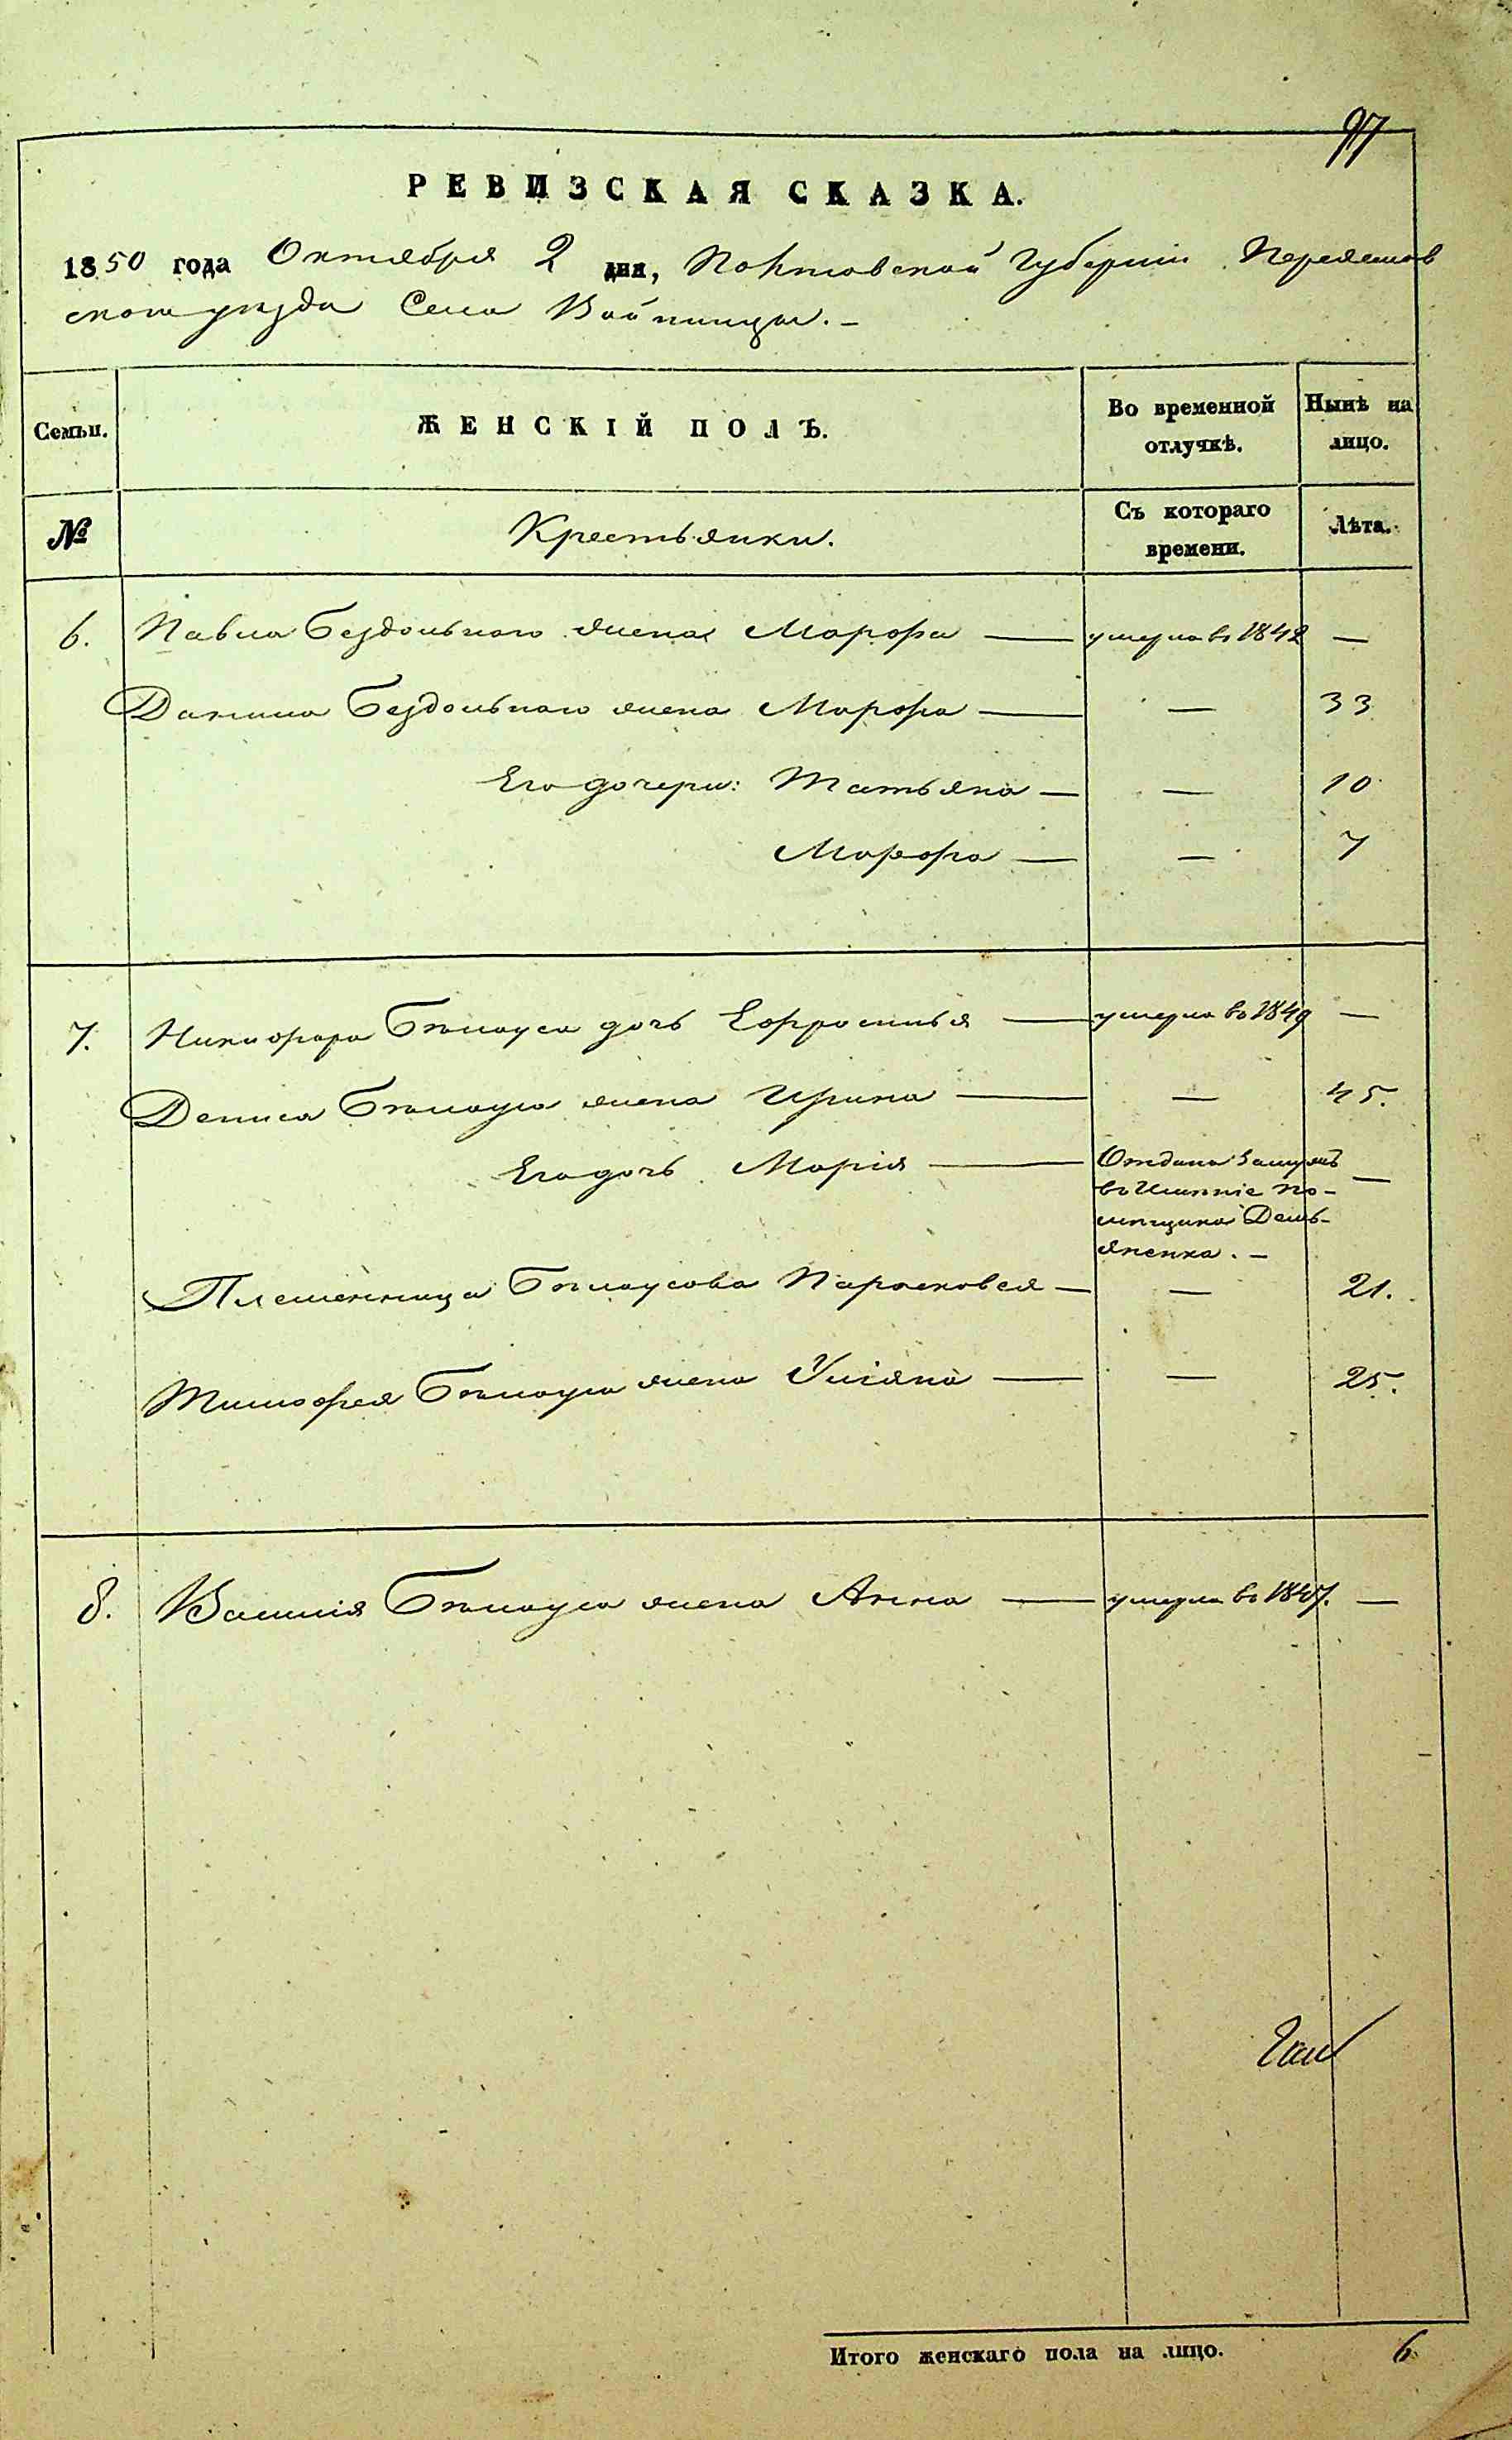 97
РЕВИЗСКАЯ СКАЗКА.
1850 года Октября 2 дня, Полтавской Губерніи Переяслав
скаго уѣзда Села Войтовцы. –
Семьи. ЖЕНСКІЙ ПОЛЪ. Во временной отлучкѣ. Нынѣ на лицо.
№ Крестьянки. Съ котораго времени. Лѣта.
6. Павла Бездольнаго жена Марфа — умерла въ 1842 —
Данила Бездольнаго жена Марфа — — 33
Его дочери: Татьяна — — 10
Марфа — — 7
7. Никифора Бѣлоуса дочь Ефросинья — умерла въ 1849 —
Дениса Бѣлоуса жена Ирина — — 45.
Его дочь Марія — Отдана замужъ —
въ Имѣніе по-
мѣщика Демь-
яненка. –
Племенница Бѣлоусова Парасковея — — 21.
Тимофея Бѣлоуса жена Уліяна — — 25.
8. Василія Бѣлоуса жена Анна — умерла въ 1847. —
Итого женскаго пола на лицо. 6